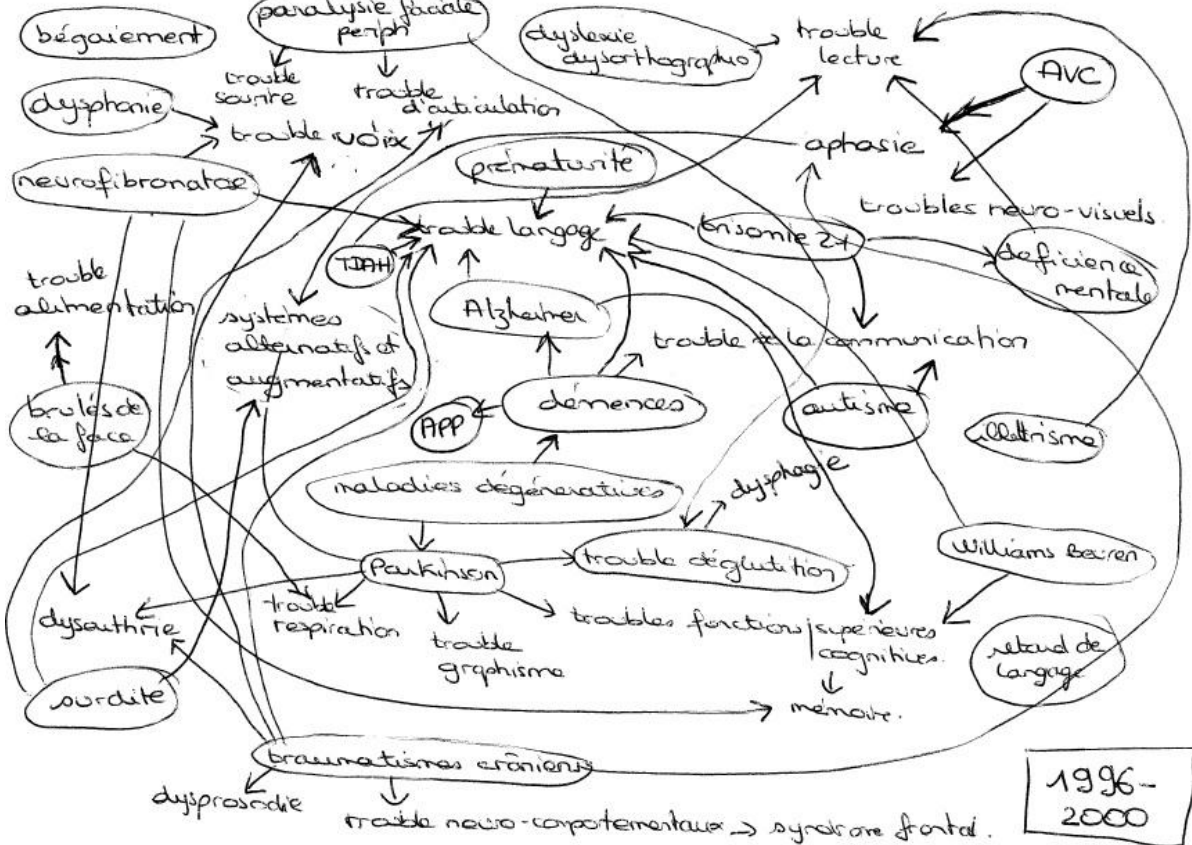 bégaiement
paralysie faciale
periph
dyslexie
dysorthographie
trouble
lecture
AVC
trouble
sourire
trouble
d'articulation
dysphonie
trouble voix
aphasie
prématurité
neurofibromatose
troubles neuro-visuels
trouble langage
trisomie 21
TDAH
déficience
mentale
trouble
alimentation
Alzheimer
systèmes
alternatifs et
augmentatifs
trouble de la communication
brulés de
la face
APP
démences
autisme
illettrisme
maladies dégénératives
dysphagie
Parkinson
trouble déglutition
Williams Beuren
dysarthrie
trouble
respiration
trouble
graphisme
troubles fonctions/supérieures
cognitives.
retard de
langage
surdité
mémoire.
traumatismes crâniens
dysprosodie
trouble neuro-comportementaux → syndrome frontal.
1996-
2000